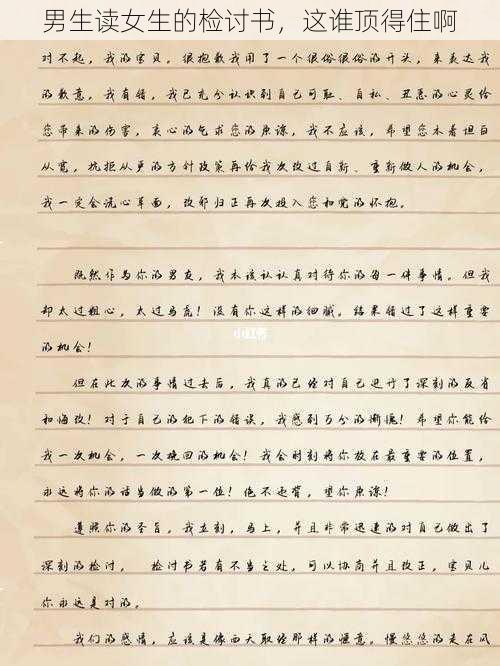 男生读女生的检讨书，这谁顶得住啊
对不起，我的宝贝，很抱歉我用了一个很俗很俗的开头，来表达我
的歉意，我有错，我已充分认识到自己可耻、自私、丑恶的心灵给
您带来的伤害，衷心的乞求您的原谅，我不应该，希望您本着坦白
从宽，抗拒从更的方针政策再给我次改过自新、重新做人的机会，
我一定会洗心革面，改邪归正再次投入您和党的怀抱。
既然作为你的男友，我本该认认真对待你的每一件事情。但我
却太过粗心，太过马虎！没有你这样的细腻。结果错过了这样重要
小红书
的机会！
但在此次的事情过去后，我真的已经对自己进行了深刻的反省
和悔改！对于自己的犯下的错误，我感到万分的惭愧！希望你能给
我一次机会，一次挽回的机会！我会时刻将你放在最重要的位置，
永远将你的话当做的第一位！绝不违背，望你原谅！
遵照你的圣旨，我立刻，马上，并且非常迅速的对自己做出了
深刻的检讨， 检讨书若有不当之处，可以协商并且改正，宝贝儿
你永远是对的。
我们的感情，应该是像西天取经那样的惬意。慢悠悠的走在风